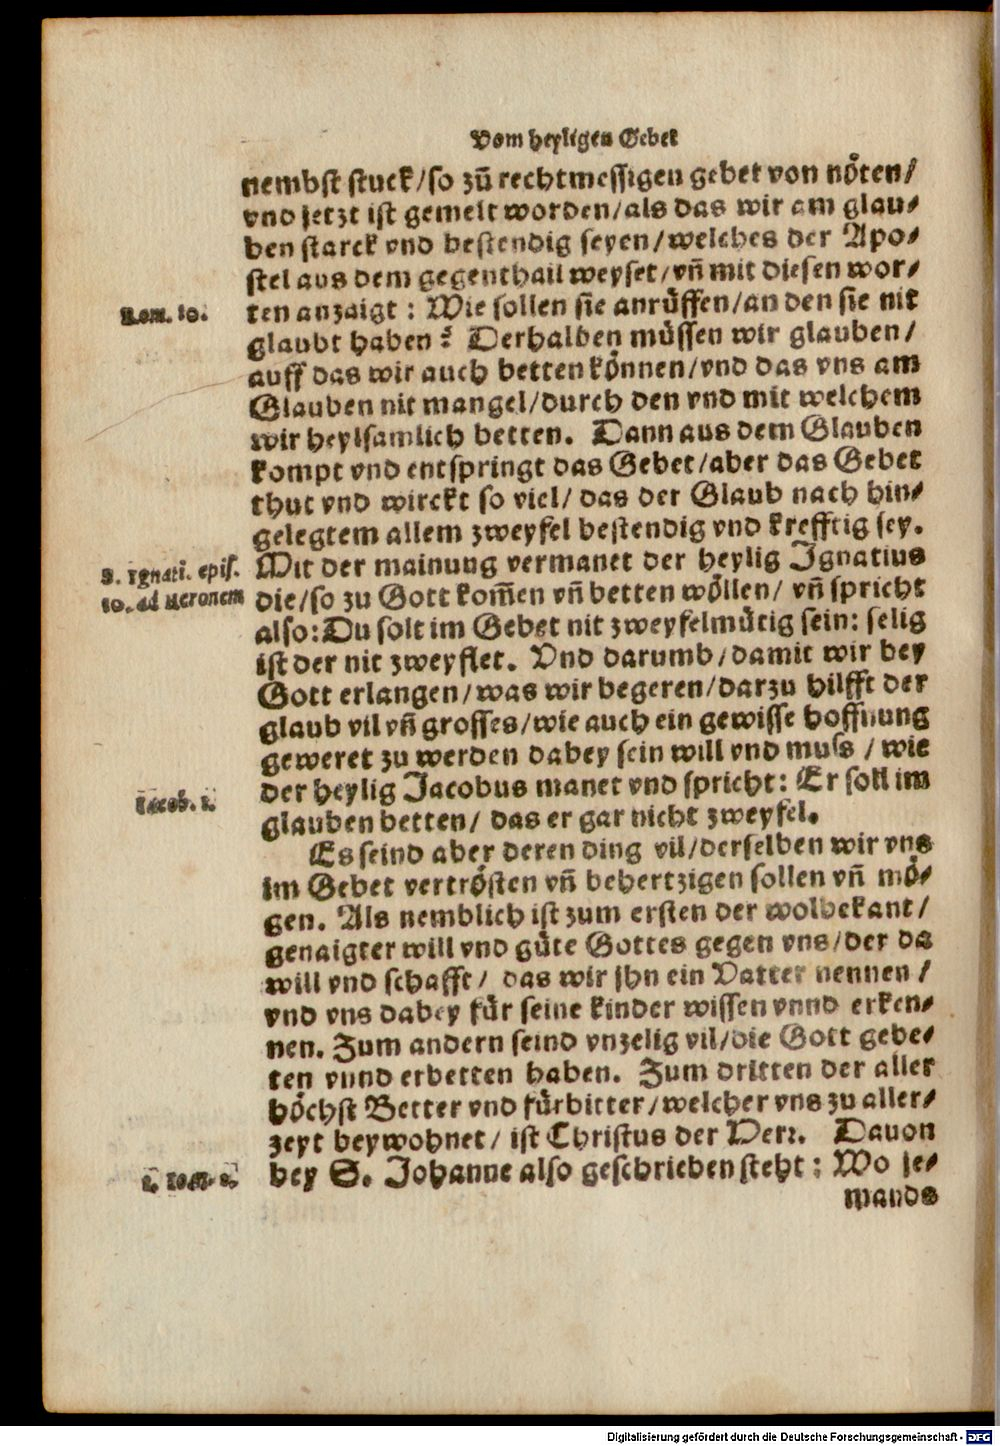 Vom heyligen Gebet
nembst stuck/so zů rechtmessigen gebet von nöten/
vnd jetzt ist gemelt worden/als das wir am glau-
ben starck vnd bestendig seyen/welches der Apo-
stel aus dem gegenthail weyset/vñ mit diesen wor-
Rom. 10.
ten anzaigt: Wie sollen sie anrüffen/an den sie nit
glaubt haben? Derhalben müssen wir glauben/
auff das wir auch betten können/vnd das vns am
Glauben nit mangel/durch den vnd mit welchem
wir heylsamlich betten. Dann aus dem Glauben
kompt vnd entspringt das Gebet/aber das Gebet
thut vnd wirckt so viel/ das der Glaub nach hin-
gelegtem allem zweyfel bestendig vnd krefftig sey.
S. Ignati. epis.
Mit der mainung vermanet der heylig Ignatius
10. ad Heronem
die/so zu Gott kom̃en vñ betten wöllen/ vñ spricht
also: Du solt im Gebet nit zweyfelmütig sein: selig
ist der nit zweyflet. Vnd darumb/damit wir bey
Gott erlangen/was wir begeren/darzu hilfft der
glaub vil vñ grosses/wie auch ein gewisse hoffnung
geweret zu werden dabey sein will vnd muss/wie
Iacob. 1.
der heylig Jacobus manet vnd spricht: Er soll im
glauben betten/ das er gar nicht zweyfel.
Es seind aber deren ding vil/derselben wir vns
im Gebet vertrösten vñ behertzigen sollen vñ mö-
gen. Als nemblich ist zum ersten der wolbekant/
genaigter will vnd güte Gottes gegen vns/der da
will vnd schafft/ das wir jhn ein Vatter nennen/
vnd vns dabey für seine kinder wissen vnnd erken-
nen. Zum andern seind vnzelig vil/die Gott gebe-
ten vnnd erbetten haben. Zum dritten der aller
höchst Better vnd fürbitter/welcher vns zu aller-
zeyt beywohnet/ ist Christus der Herr. Dauon
1. Ioan. 2.
bey S. Johanne also geschrieben steht: Wo je-
mands
Digitalisierung gefördert durch die Deutsche Forschungsgemeinschaft - DFG